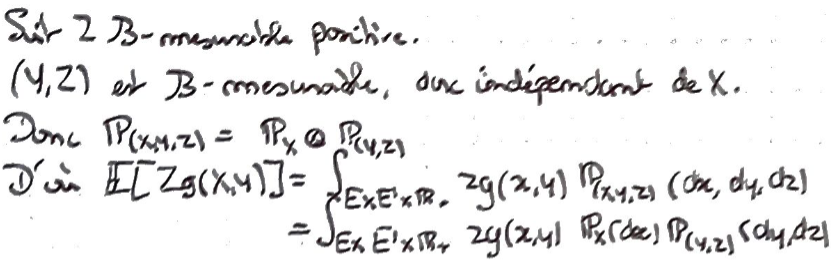 Soit Z B-mesurable positive.
(Y,Z) est B-mesurable, donc indépendant de X.
Donc P(X,Y,Z) = P_X ⊗ P(Y,Z)
D'où E[Zg(X,Y)] = ∫_{E×E'×R+} zg(x,y) P(X,Y,Z) (dx, dy, dz)
= ∫_{E×E'×R+} zg(x,y) P_X(dx) P(Y,Z) (dy,dz)